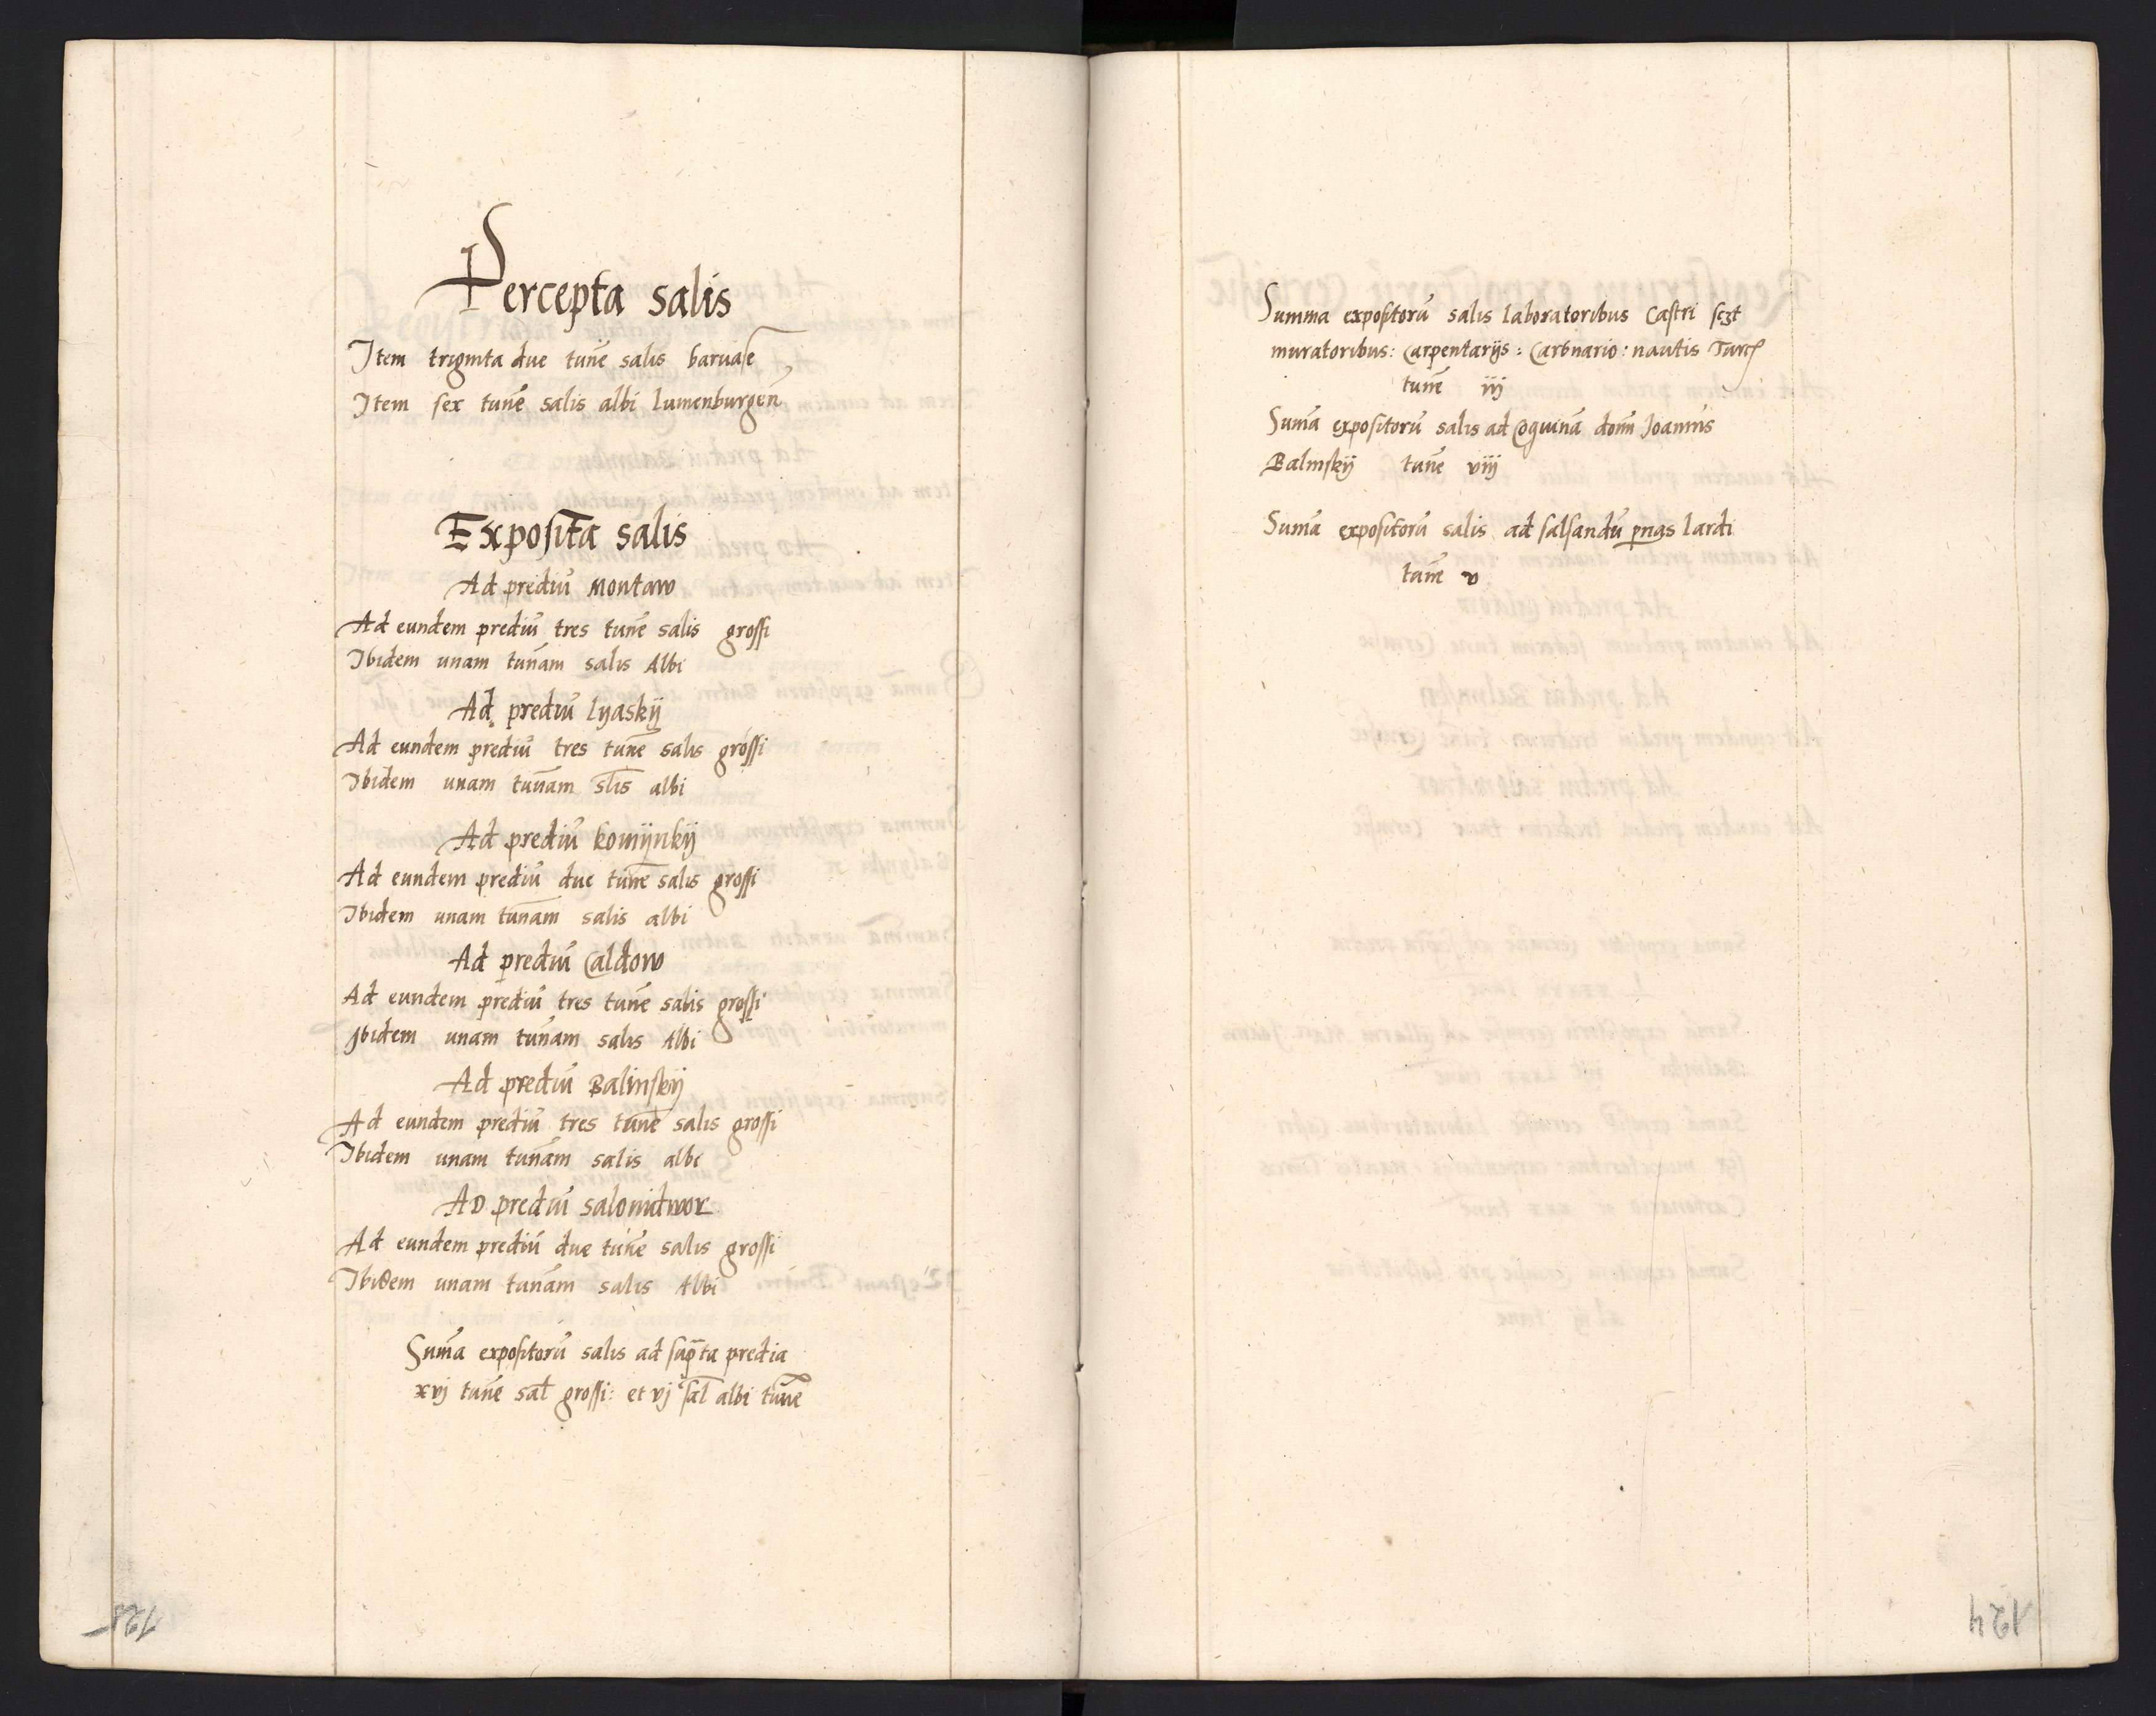 Percepta salis
Item triginta due tun̄e salis baruase
Item sex tun̄e salis albi lumenburgen̄
Exposita salis
Ad prediū Montaw
Ad eundem prediū tres tun̄e salis grossi
Ibidem unam tun̄am salis Albi
Ad prediū lyaskij
Ad eundem prediū tres tun̄e salis grossi
Ibidem unam tun̄am sl̄is albi
Ad prediū kowijnkij
Ad eundem prediū due tun̄e salis grossi
Ibidem unam tun̄am salis albi
Ad prediū Caldow
Ad eundem prediū tres tun̄e salis grossi
Ibidem unam tun̄am salis Albi
Ad prediū Balinskij
Ad eundem prediū tres tun̄e salis grossi
Ibidem unam tun̄am salis albi
Ad prediū salonidwor
Ad eundem prediū due tun̄e salis grossi
Ibidem unam tun̄am salis Albi
Sum̄a expositorū salis ad sup̄ta predia
xvj tun̄e sal̄ grossi: et vj sal̄ albi tun̄e
Summa expositorū salis laboratoribus Castri sczt
muratoribus: Carpentarijs: Carbnario: nautis
tun̄e iij
Sum̄a expositorū salis ad Coquinā dom̄ Joannis
Balinskij tun̄e viij
Sum̄a expositorū salis ad salsandū p̱nas lardi
tun̄e v
124